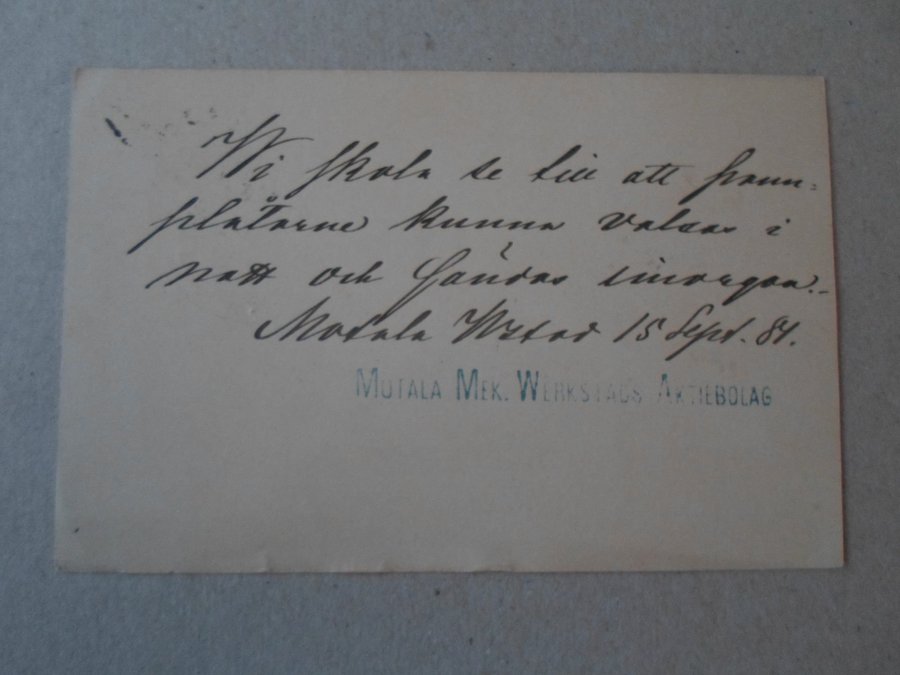 Wi skola se till att pann-
plåtarne kunna valsas i
natt och sändas imorgon.
Motala Wstad 15 Sept. 81.
MOTALA MEK. WERKSTADS AKTIEBOLAG